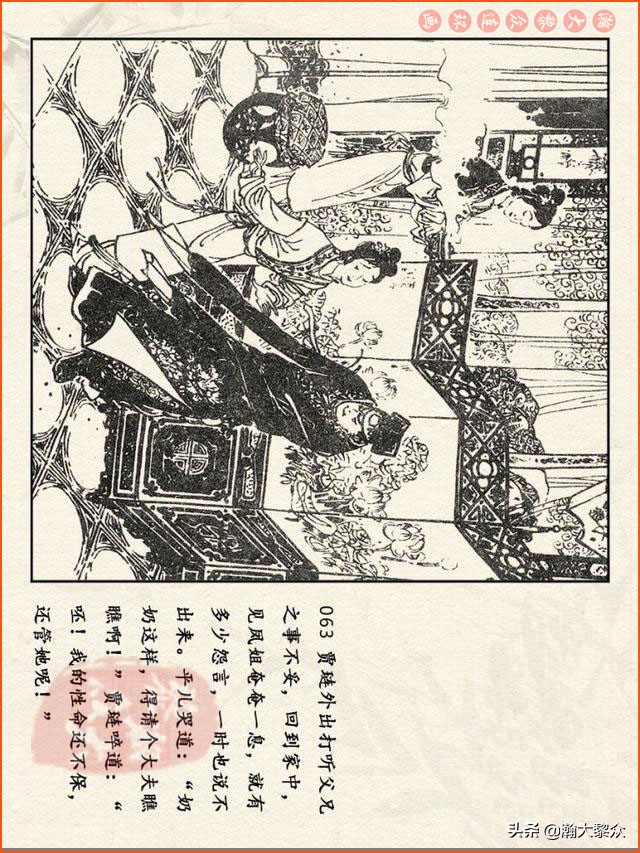 瀚大黎众连环画
063 贾琏外出打听父兄
之事不妥，回到家中，
见凤姐奄奄一息，就有
多少怨言，一时也说不
出来。平儿哭道：“奶
奶这样，得请个大夫瞧
瞧啊！”贾琏啐道：“
呸！我的性命还不保，
还管她呢！”
头条 @瀚大黎众